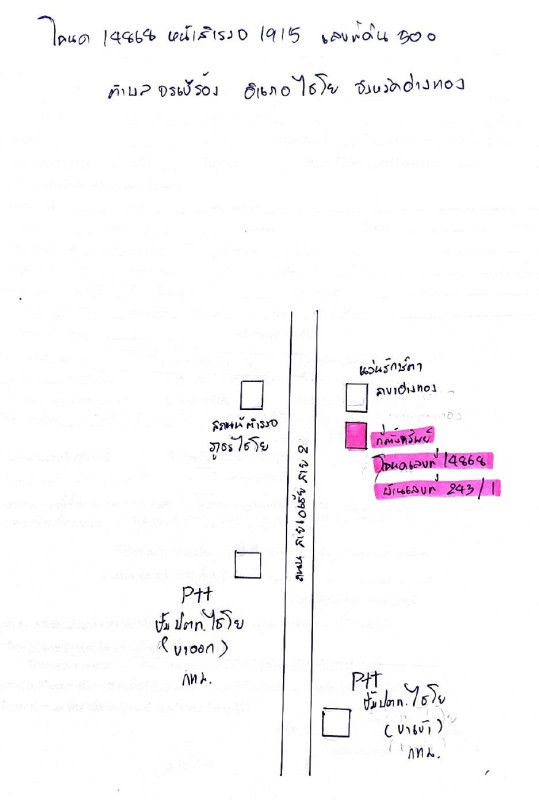 โฉนด 14868 หน้าสำรวจ 1915 เลขที่ดิน 300
ตำบล จรเข้ร้อง อำเภอ ไชโย จังหวัดอ่างทอง
แว่นรักษ์ตา
สาขาอ่างทอง
สถานีตำรวจ
ภูธร ไชโย
ที่ตั้งทรัพย์
โฉนดเลขที่ 14868
บ้านเลขที่ 243/1
ถนน สายเอเชีย สาย 2
PTT
ปั๊ม ปตท. ไชโย
(ขาออก)
กทม.
PTT
ปั๊มปตท. ไชโย
(ขาเข้า)
กทม.